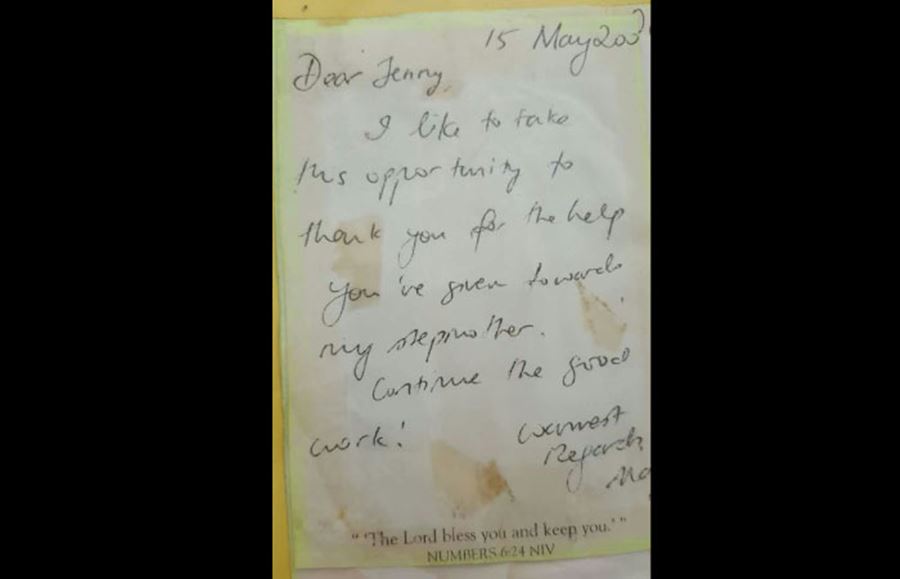 15 May 200
Dear Jenny,
I like to take
this opportunity to
thank you for the help
you've given towards
my stepmother.
Continue the good
work!
Warmest
Regards,
" 'The Lord bless you and keep you.' "
NUMBERS 6:24 NIV